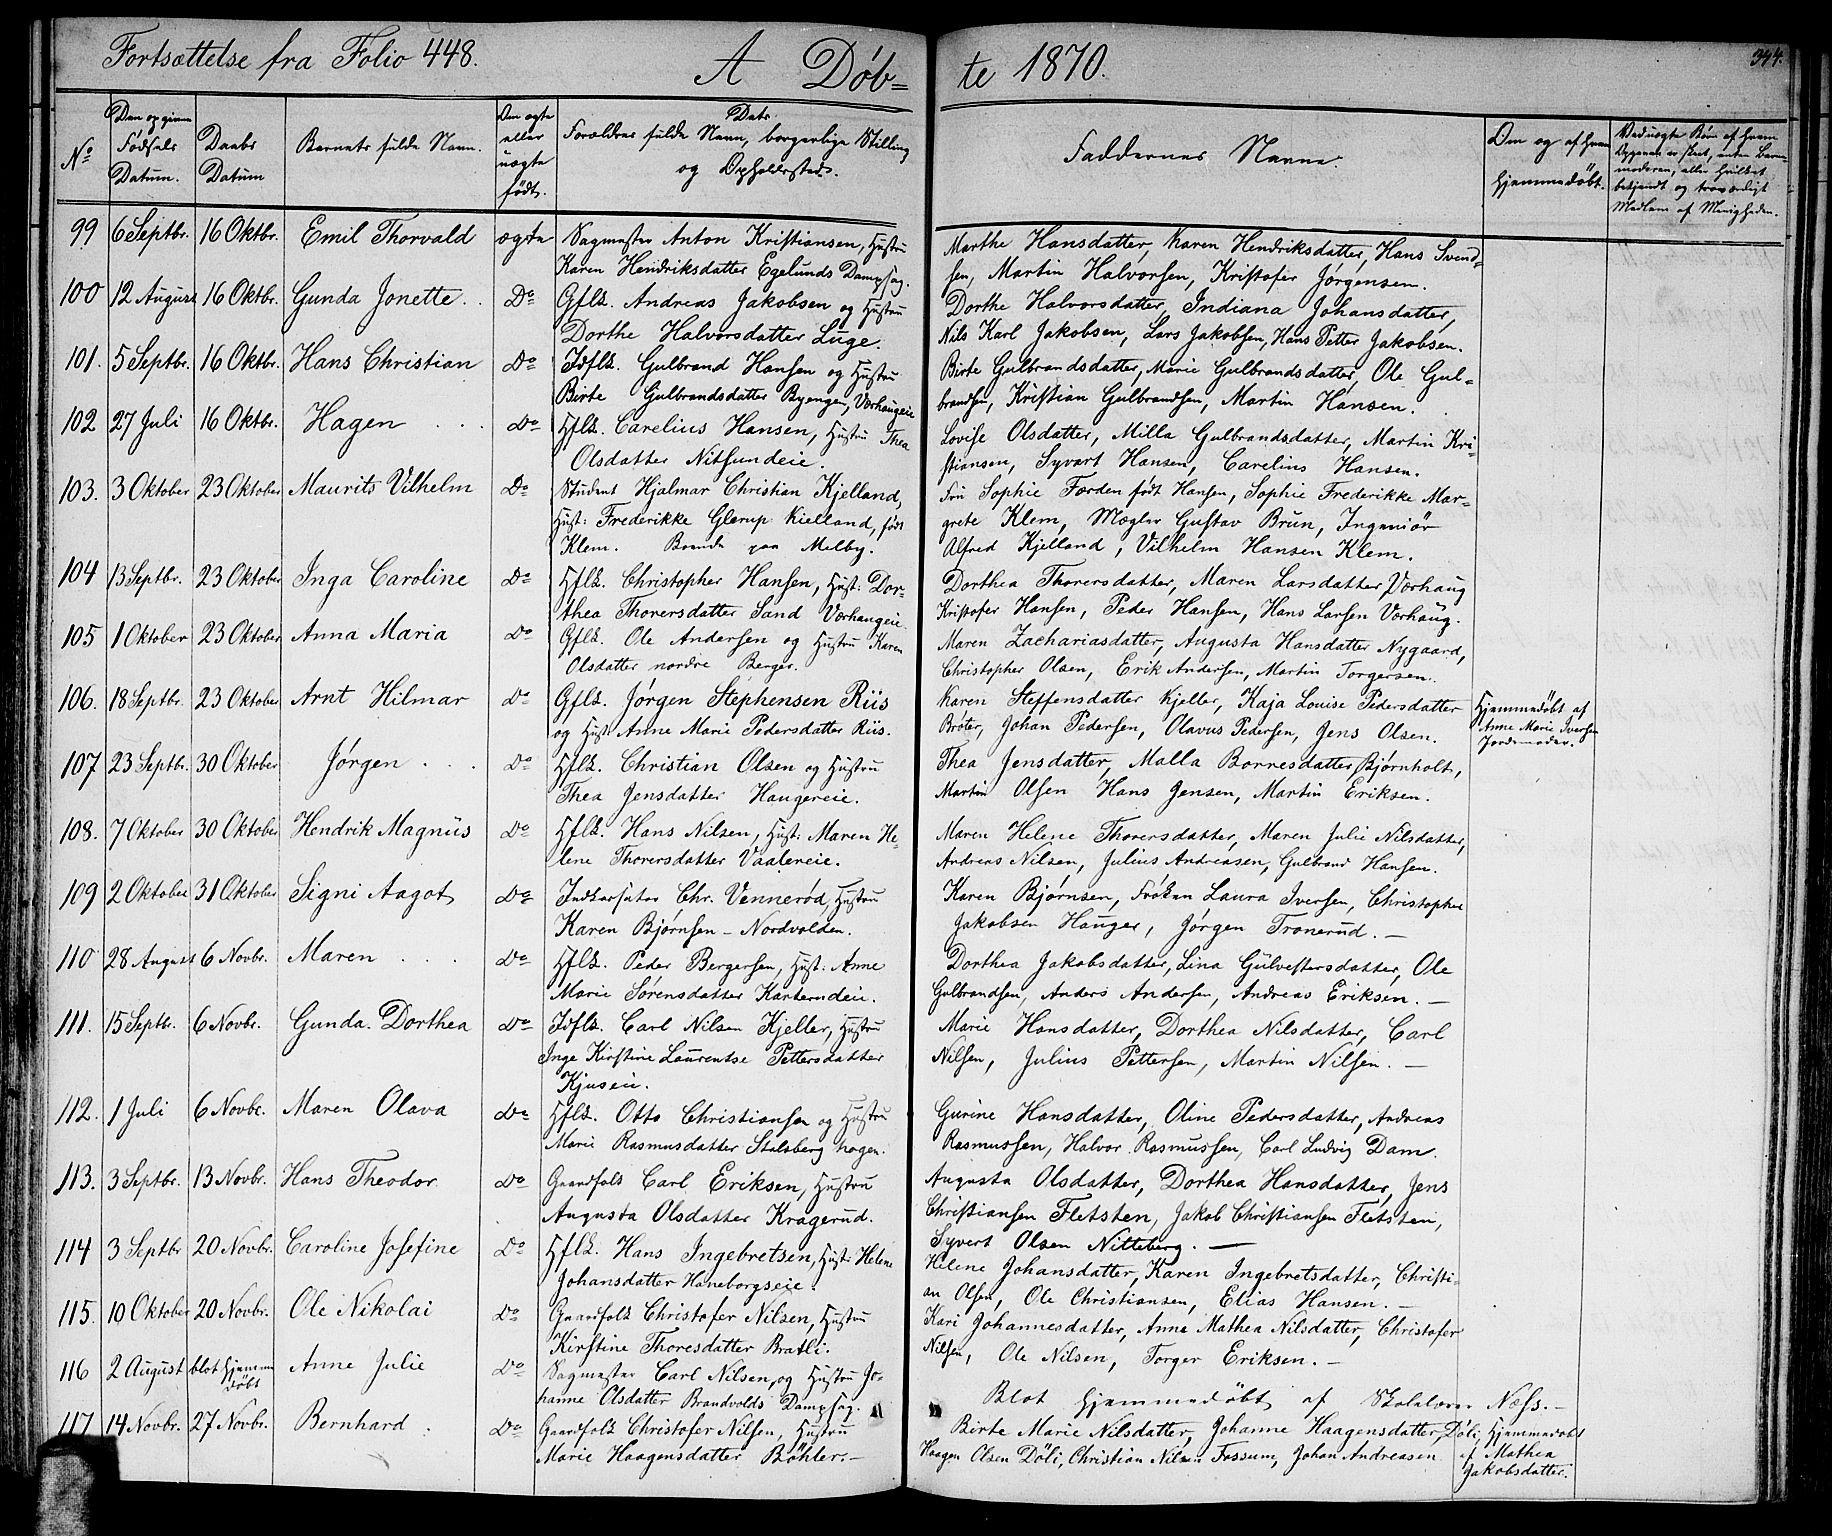 Fortsættelse fra Folio 448.
A Døb= te 1870.
344.
No
Den opgivne Fødsels Datum.
Daabs Datum
Barnets fulde Navn.
Om ægte eller uægte født.
Forældres fulde Navn, borgerlige Stilling og Opholdssted.
Faddernes Navne.
Om og af hvem hjemmedøbt.
99 6 Septbr. 16 Oktbr. Emil Thorvald ægte Sagmester Anton Kristiansen, Hustru Marthe Hansdatter, Karen Hendriksdatter, Hans Svend=
Karen Hendriksdatter Egelunds Dampsag. sen, Martin Halvorsen, Kristofer Jørgensen.
100 12 August 16 Oktbr. Gunda Jonette. Do Gflk. Andreas Jakobsen og Hustru Dorthe Halvorsdatter, Indiana Johansdatter,
Dorthe Halvorsdatter Luge. Nils Karl Jakobsen, Lars Jakobsen, Hans Petter Jakobsen.
101. 5 Septbr. 16 Oktbr. Hans Christian Do Idflk. Gulbrand Hansen og Hustru Birte Gulbrandsdatter, Marie Gulbrandsdatter, Ole Gul=
Birte Gulbrandsdatter Byengen, Værhaugeie brandsen, Kristian Gulbrandsen, Martin Hansen.
102 27 Juli 16 Oktbr. Hagen Do Hflk. Carelius Hansen, Hustru Thea Lovise Olsdatter, Milla Gulbrandsdatter, Martin Kri-
Olsdatter Nitsundeie. stiansen, Syvart Hansen, Carelius Hansen.
103. 3 Oktober 23 Oktober Maurits Vilhelm Do Student Hjalmar Christian Kjelland, Fru Sophie Førden født Hansen, Sophie Frederikke Mar-
Hust: Frederikke Glerup Kielland, født grete Klem, Mægler Gustav Brun, Ingeniør
Klem. Boende paa Melby. Alfred Kjelland, Vilhelm Hansen Klem.
104 13 Septbr. 23 Oktober Inga Caroline Do Hflk. Christopher Hansen, Hust: Dor- Dorthea Thorersdatter, Maren Larsdatter Værhaug
thea Thorersdatter Sand Værhaugeie Kristofer Hansen, Peder Hansen, Hans Larsen Værhaug.
105 1 Oktober 23 Oktober Anna Maria Do Gflk. Ole Andersen og Hustru Karen Maren Zachariasdatter, Augusta Hansdatter Nygaard,
Olsdatter nordre Berger. Christopher Olsen, Erik Andersen, Martin Torgersen.
106. 18 Septbr. 23 Oktober Arnt Hilmar Do Gflk. Jørgen Stephensen Riis Karen Steffensdatter Kjeller, Kaja Louise Pedersdatter Hjemmedøbt af
og Hust: Anne Marie Pedersdatter Riis. Brøter, Johan Pedersen, Olavus Pedersen, Jens Olsen. Anne Marie Iversen
Jordemoder.
107 23 Septbr. 30 Oktober Jørgen Do Hflk. Christian Olsen og Hustru Thea Jensdatter, Malla Borresdatter Bjørnholt,
Thea Jensdatter Haugereie. Martin Olsen Hans Jensen, Martin Eriksen.
108. 7 Oktober 30 Oktober Hendrik Magnus Do Hflk. Hans Nilsen, Hust: Maren He- Maren Helene Thorersdatter, Maren Julie Nilsdatter,
lene Thorersdatter Vaalereie. Andreas Nilsen, Julius Andreasen, Gulbrand Hansen.
109 2 Oktober 31 Oktober Signi Aagot Do Indkassator Chr. Vennerød, Hustru Karen Bjørnsen, Frøken Laura Iversen, Christopher
Karen Bjørnsen - Nordvolden. Jakobsen Hauger, Jørgen Tronerud. -
110 28 August 6 Novbr. Maren Do Hflk. Peder Bergersen, Hust: Anne Dorthea Jakobsdatter, Lina Gulvestersdatter, Ole
Marie Sørensdatter Karterudeie. Gulbrandsen, Anders Andersen, Andreas Eriksen. -
111. 15 Septbr. 6 Novbr. Gunda Dorthea Do Idflk. Carl Nilsen Kjeller, Hustru Marie Hansdatter, Dorthea Nilsdatter, Carl
Inge Kirstine Laurentse Pettersdatter Nilsen, Julius Pettersen, Martin Nilsen. -
Kjuseie.
112. 1 Juli 6 Novbr. Maren Olava Do Hflk. Otto Christiansen og Hustru Gurine Hansdatter, Oline Pedersdatter, Andreas
Marie Rasmusdatter Stalsberg hagen. Rasmussen, Halvor Rasmussen, Carl Ludvig Dam.
113. 3 Septbr. 13 Novbr. Hans Theodor Do Gaardfolk Carl Eriksen, Hustru Augusta Olsdatter, Dorthea Hansdatter, Jens
Augusta Olsdatter Kragerud. Christiansen Fletsten, Jakob Christiansen Fletsten,
Syvert Olsen Nitteberg. -
114 3 Septbr 20 Novbr. Caroline Josefine Do Hflk. Hans Ingebretsen, Hust: Helene Helene Johansdatter, Karen Ingebretsdatter, Christi-
Johansdatter Haneborgseie. an Olsen, Ole Christiansen, Elias Hansen. -
115. 10 Oktober 20 Novbr. Ole Nikolai Do Gaardfolk Christofer Nilsen, Hustru Kari Johannesdatter, Anne Mathea Nilsdatter, Christofer
Kirstine Thoresdatter Bratli. Nilsen, Ole Nilsen, Torger Eriksen. -
116 2 August blot hjemmedøbt Anne Julie Do Sagmester Carl Nilsen, og Hustru Jo- Blot hjemmedøbt af Skolelærer Næss. -
hanne Olsdatter Brandvolds Dampsag.
117 14 Novbr. 27 Novbr. Bernhard Do Gaardfolk Christofer Nilsen, Hustru Birte Marie Nilsdatter, Johanne Haagensdatter Döli, Hjemmedøbt
Marie Haagensdatter Böhler. - Haagen Olsen Döli, Christian Nilsen Fossum, Johan Andreasen af Mathea
Jakobsdatter.